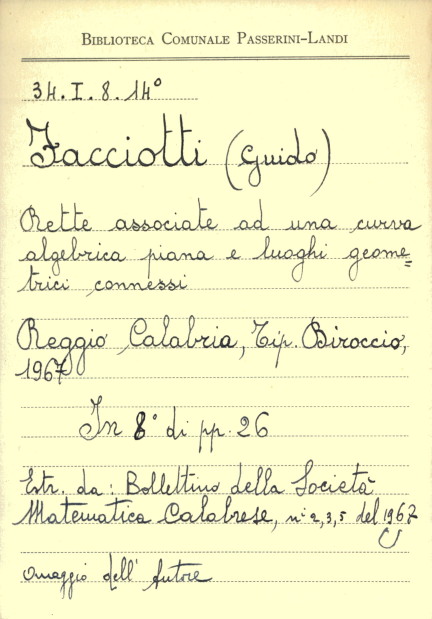 BIBLIOTECA COMUNALE PASSERINI-LANDI
34.I.8.14°
Facciotti (Guido)
Rette associate ad una curva
algebrica piana e luoghi geome=
trici connessi
Reggio Calabria, Tip. Biroccio,
1967
In 8° di pp. 26
Estr. da: Bollettino della Società
Matematica Calabrese, n° 2,3,5 del 1967
Omaggio dell'Autore